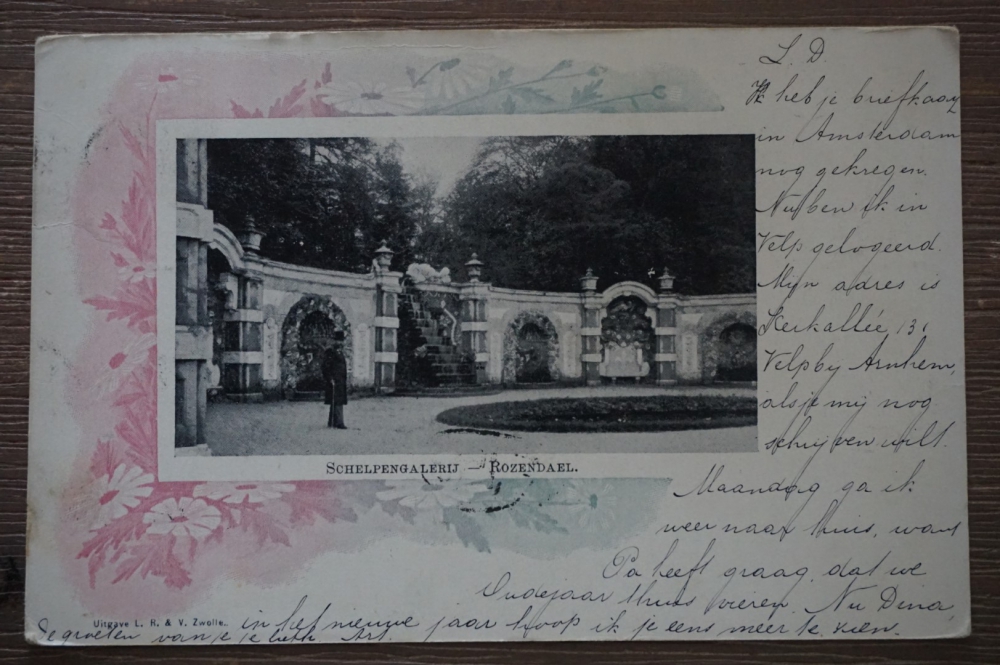 L. D.
Ik heb je briefkaart
in Amsterdam
nog gekregen.
Nu ben ik in
Velp gelogeerd.
Mijn adres is
Kerkallée 13
Velp by Arnhem,
als je mij nog
schrijven wilt.
Maandag ga ik
weer naar huis, want
Pa heeft graag dat we
Oudejaar thuis vieren. Nu Dina
in het nieuwe jaar hoop ik je eens meer te zien.
de groeten van je je
SCHELPENGALERIJ — ROZENDAEL.
Uitgave L. R. & V. Zwolle.